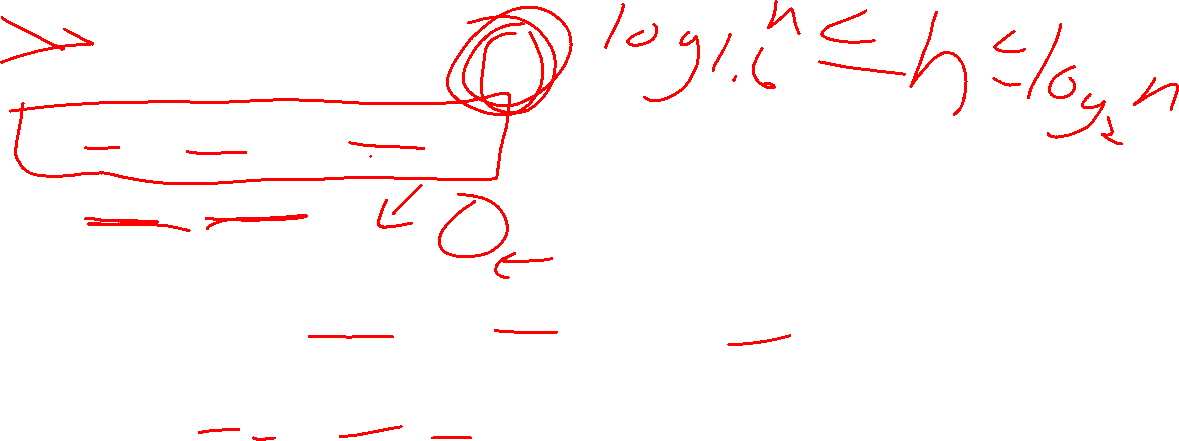 log1.6 n ≤ h ≤ log2 n